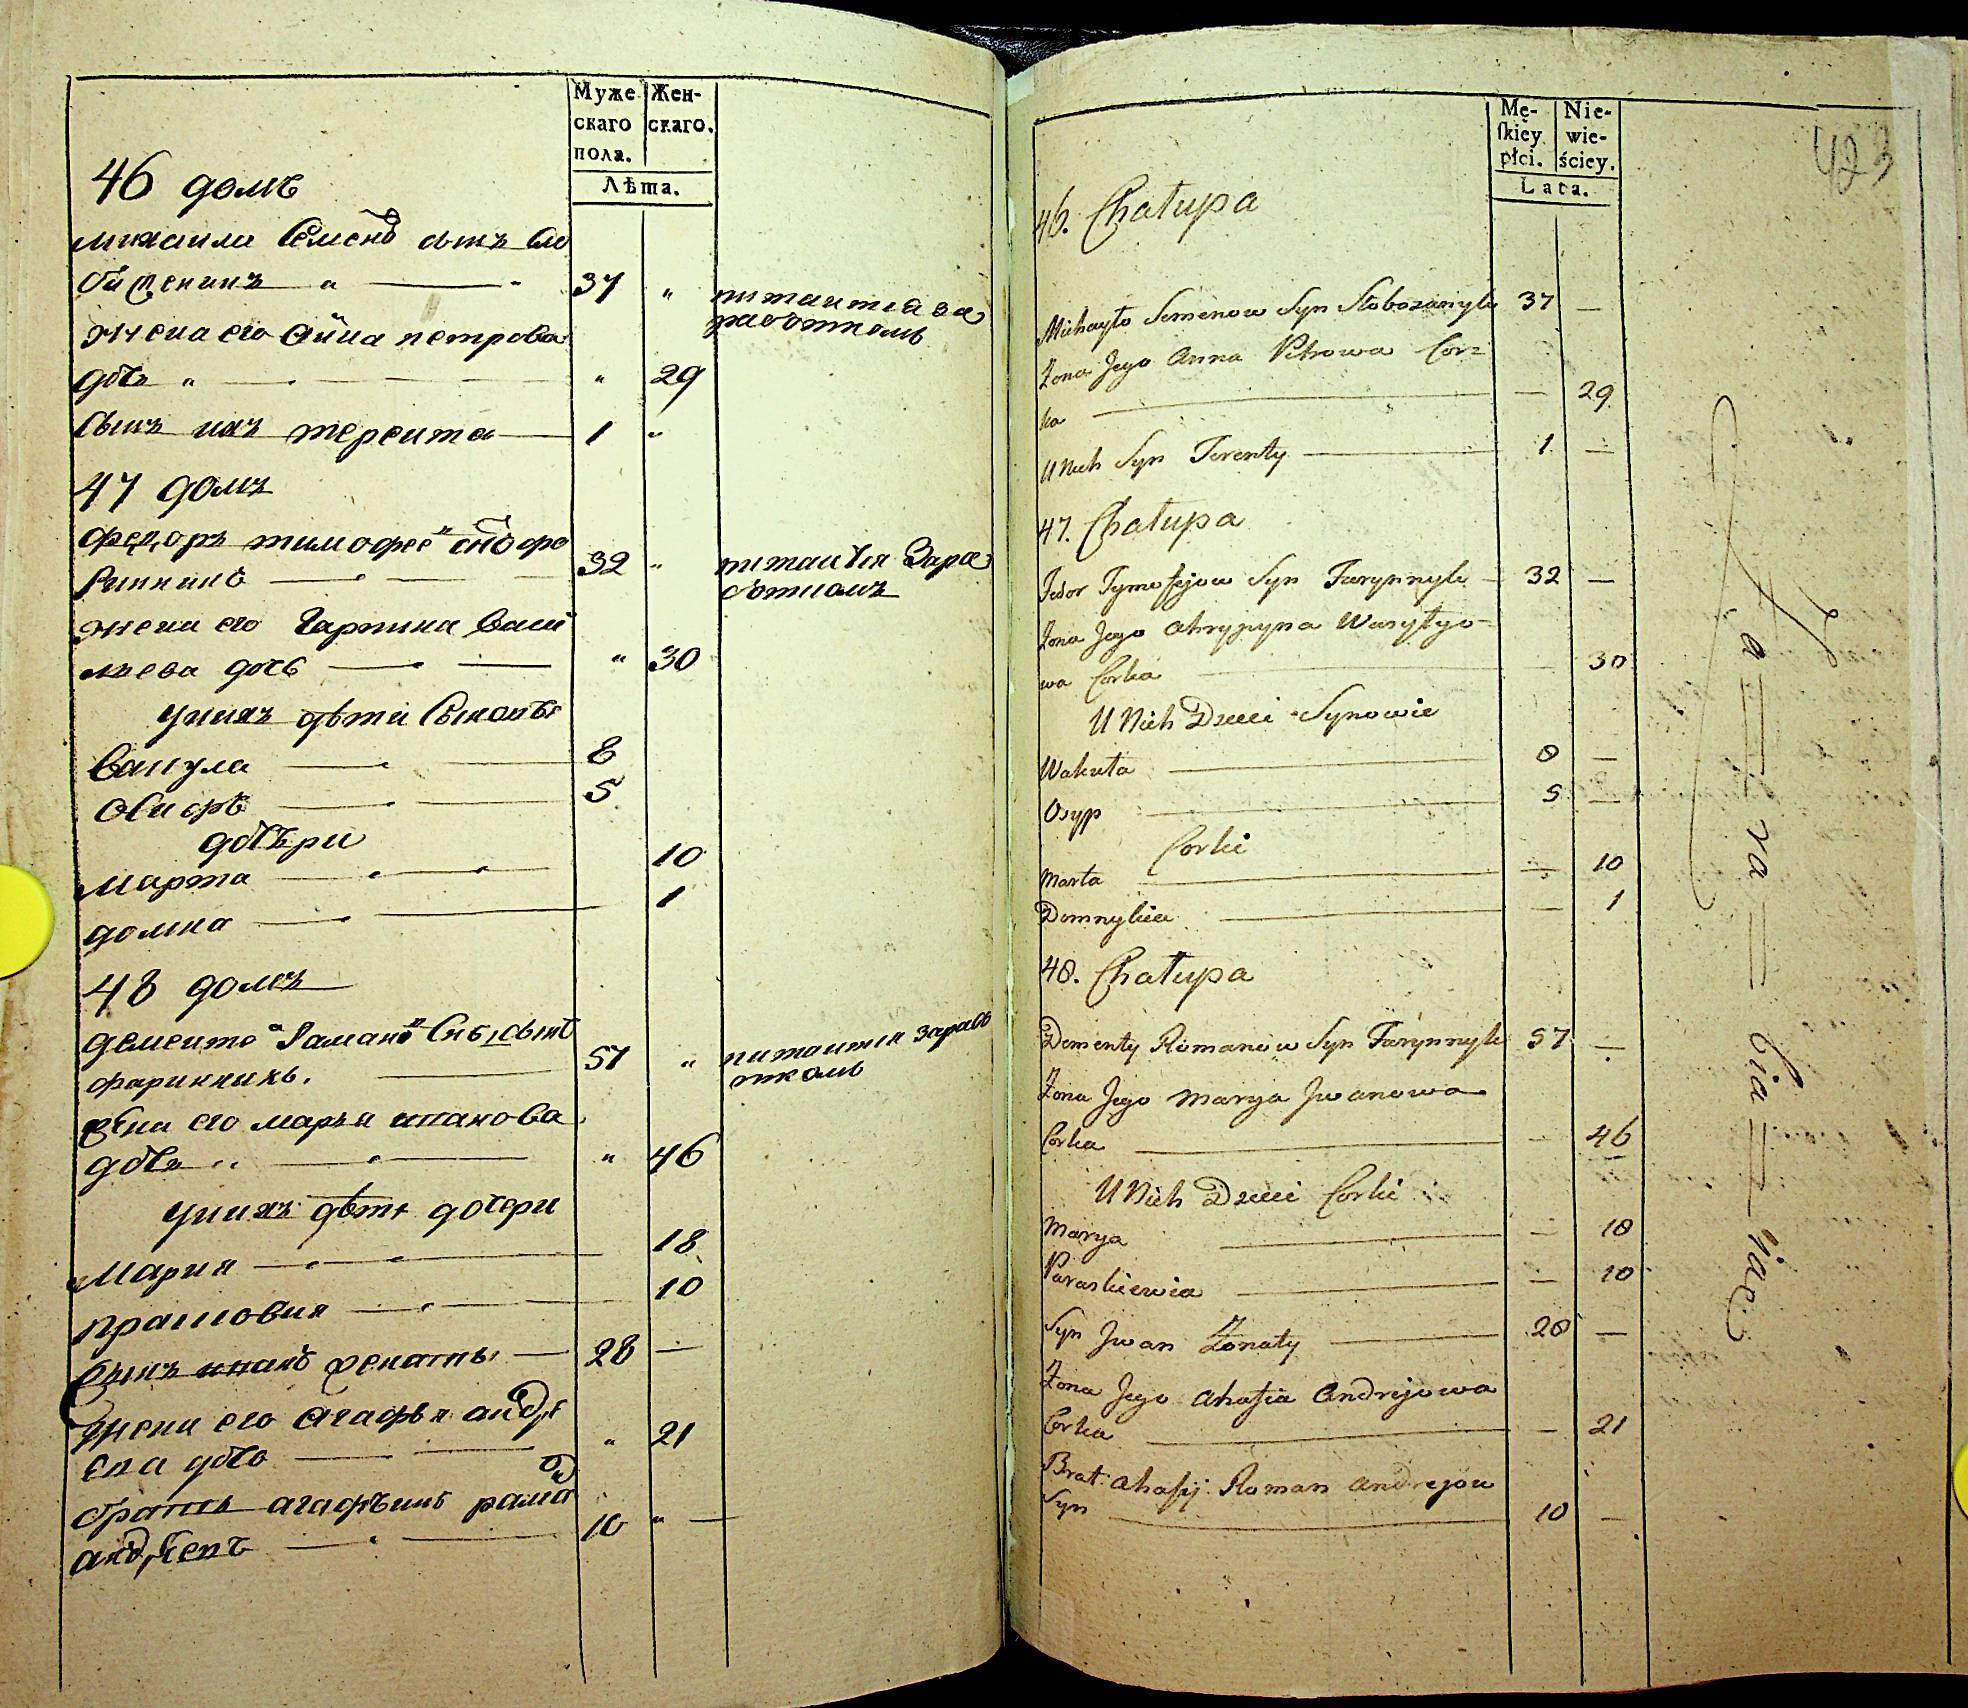 Муже
скаго
пола.
Жен-
скаго.
Лѣта.
46 домъ
михаила Семено сынъ Сло
37 "
питаитса за
работкомъ
жена его Анна петрова
дочь " "
29
Сынъ ихъ терента 1 "
47 домъ
федоръ тимофее фа
ринникъ 32 "
питаится Зара
боткомъ
жена его Гарпина Васи
льева дочь " 30
у нихъ дѣти Сыновья
Вакула 8
Осифъ 5
дочери
марта 10
домна 1
48 домъ
дементе Рамано сынъ
фаринникъ. 57 "
питаитса зараб
откомъ
жена его марья иванова
дочь " 46
у нихъ дѣти дочери
Мария 18
прасковия 10
Сынъ иванъ женаты 28 —
жена его Агафья андре
ева дочь " 21
братъ агафьинъ рама
андреевъ 10 "
423
Mę-
ſkiey
płci.
Nie-
wie-
ściey.
Lata.
46. Chałupa
Michayło Semenow Syn Słobozanyk 37 —
Żona Jego Anna Petrowa Cor=
ka — 29
U Nich Syn Terenty 1 —
47. Chałupa
Fedor Tymofejow Syn Farynnyk 32 —
Żona Jego Ahrypyna Wasyłyo-
wa Corka 30
U Nich Dzieci Synowie
Wakuła 8 —
Osyp 5 —
Corki
Marta — 10
Domnykia — 1
48. Chałupa
Dementy Romanow Syn Farynnyk 57 —
Żona Jego Marya Jwanowa
Corka — 46
U Nich Dzieci Corki
Marya — 18
Paraskiewia — 10
Syn Jwan Żonaty 28 —
Żona Jego Ahafia Andrejowa
Corka — 21
Brat Ahafij Roman Andrejow
Syn 10 —